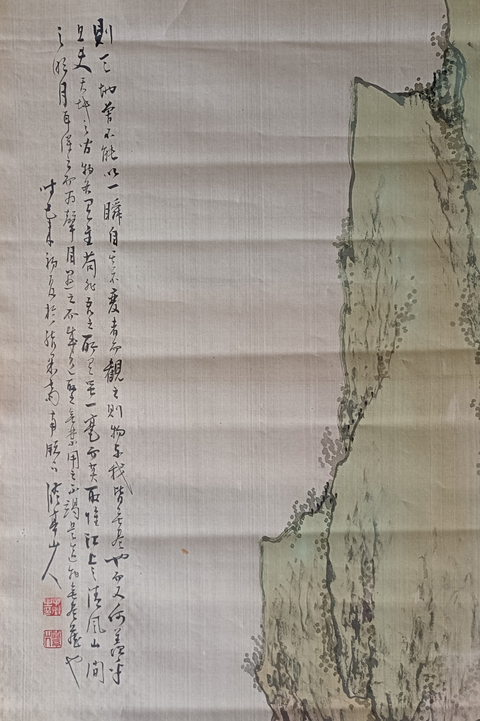 則天地曾不能以一瞬自其不變者而觀之則物與我皆無盡也而又何羨乎
且夫天地之間物各有主苟非吾之所有雖一毫而莫取惟江上之清風山間
之明月耳得之而為聲目遇之而成色取之無禁用之不竭是造物無盡藏也
初夏於 山人